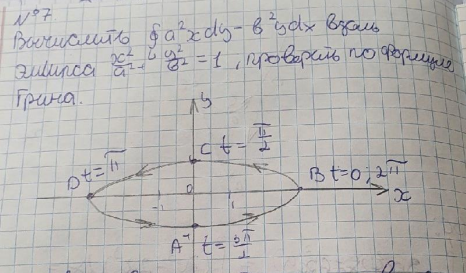 №7
Вычислить ∮ a²xdy - b²ydx вдоль
эллипса x²/a² + y²/b² = 1, проверить по формуле
Грина.
y
C t = π/2
D t = π
B t = 0, 2π
-1 0 1 x
A -1 t = 3π/2